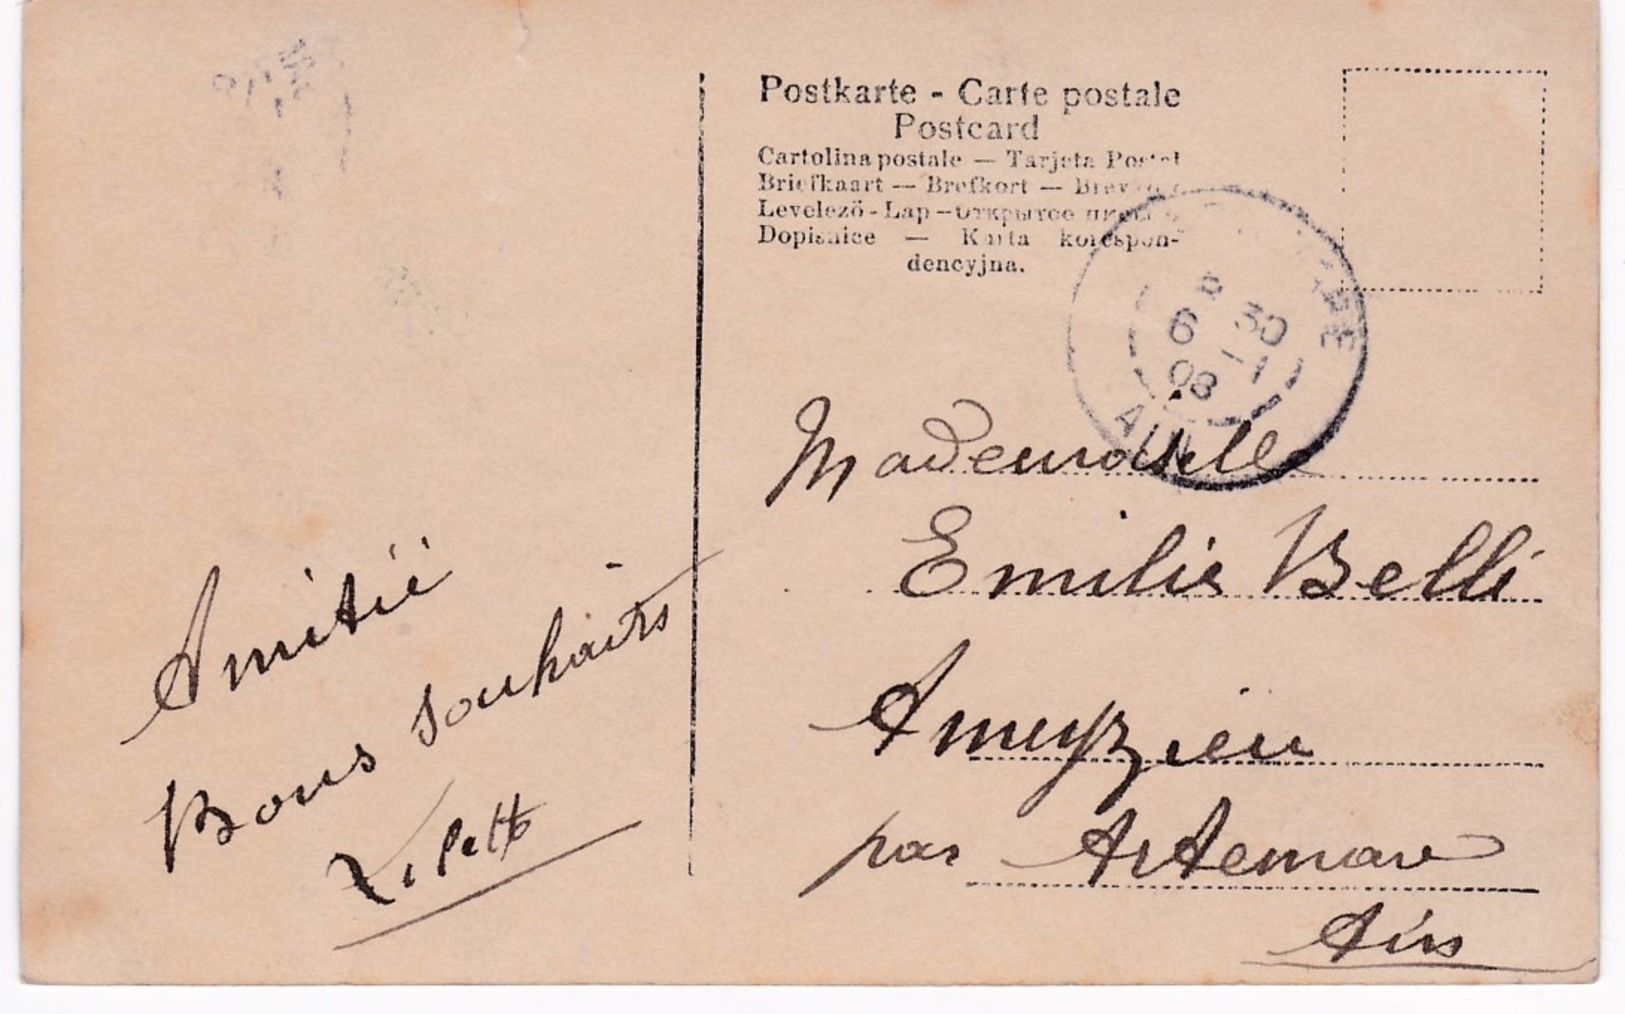 Postkarte - Carte postale
Postcard
Cartolina postale — Tarjeta Postal
Briefkaart — Brefkort —
Levelező-Lap — Открытое
Dopisnice — Karta korespon-
dencyjna.
8 30
6 -1
08
AIN
Mademoiselle
Emilie Belli
Ameyzieu
par Artemare
Ain
Amitié
Bons souhaits